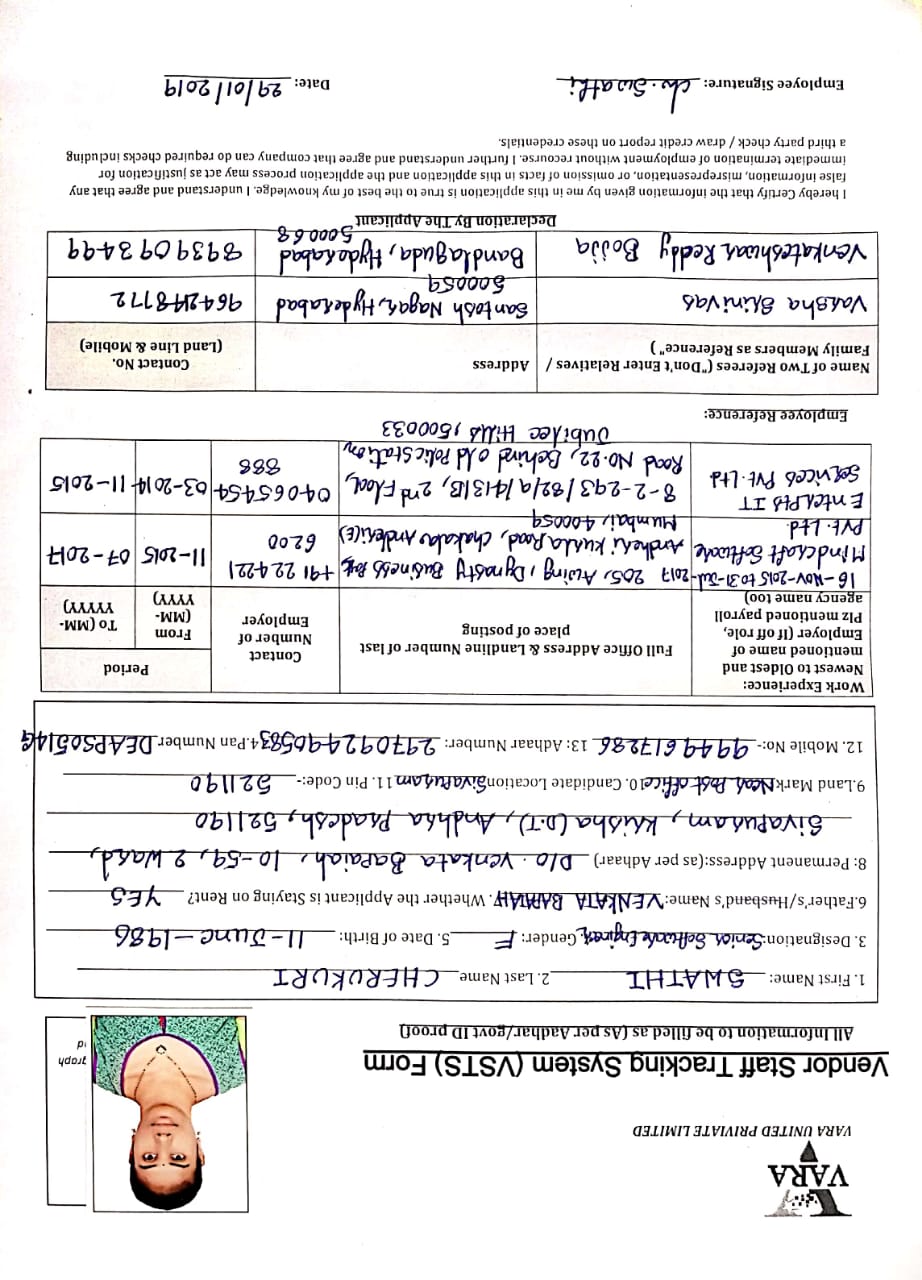 VARA
VARA UNITED PRIVIATE LIMITED
Vendor Staff Tracking System (VSTS) Form
All Information to be filled as (As per Aadhar/govt ID proof)
graph
1. First Name: SWATHI 2. Last Name CHERUKURI
3. Designation: Senior Software Engineer Gender: F 5. Date of Birth: 11-June-1986
6.Father's/Husband's Name: VENKATA BAPAIAH . Whether the Applicant is Staying on Rent? YES
8: Permanent Address:(as per Adhaar) D/o. Venkata Bapaiah, 10-59, 2 Ward,
Sivapuram, Krisha (D.T), Andhra Pradesh, 521190
9.Land Mark Near Post office 10. Candidate Location Sivapuram 11. Pin Code:- 521190
12. Mobile No:- 9949617286 13: Adhaar Number: 297092490583 4.Pan Number
Work Experience: Newest to Oldest and mentioned name of Employer (If off role, Plz mentioned payroll agency name too)
Full Office Address & Landline Number of last place of posting
Contact Number of Employer
Period
From (MM-YYYY)
To (MM-YYYY)
16-Nov-2015 to 31-Jul-2017
Mindcraft Software
Pvt. Ltd
205, Awing, Dynasty Business
Andheri Kurla Road, Chakala, Andheri(E)
Mumbai, 400059
+91 22 4221
6200
11-2015
07-2017
EnterPlS IT
Services Pvt. Ltd
8-2-293/82/a/413/B, 2nd Floor,
Road NO.22, Behind old Police Station,
Jubilee Hills, 500033
04065454
888
03-2014
11-2015
Employee Reference:
Name of Two Referees ("Don't Enter Relatives / Family Members as Reference")
Address
Contact No.
(Land Line & Mobile)
Varsha Srinivas
Santosh Nagar, Hyderabad
500059
9642148772
Venkateshwar Reddy Bojja
Bandlaguda, Hyderabad
500068
8939093499
Declaration By The Applicant
I hereby Certify that the information given by me in this application is true to the best of my knowledge. I understand and agree that any
false information, misrepresentation, or omission of facts in this application and the application process may act as justification for
immediate termination of employment without recourse. I further understand and agree that company can do required checks including
a third party check / draw credit report on these credentials.
Employee Signature: Ch. Swathi Date: 29/01/2019